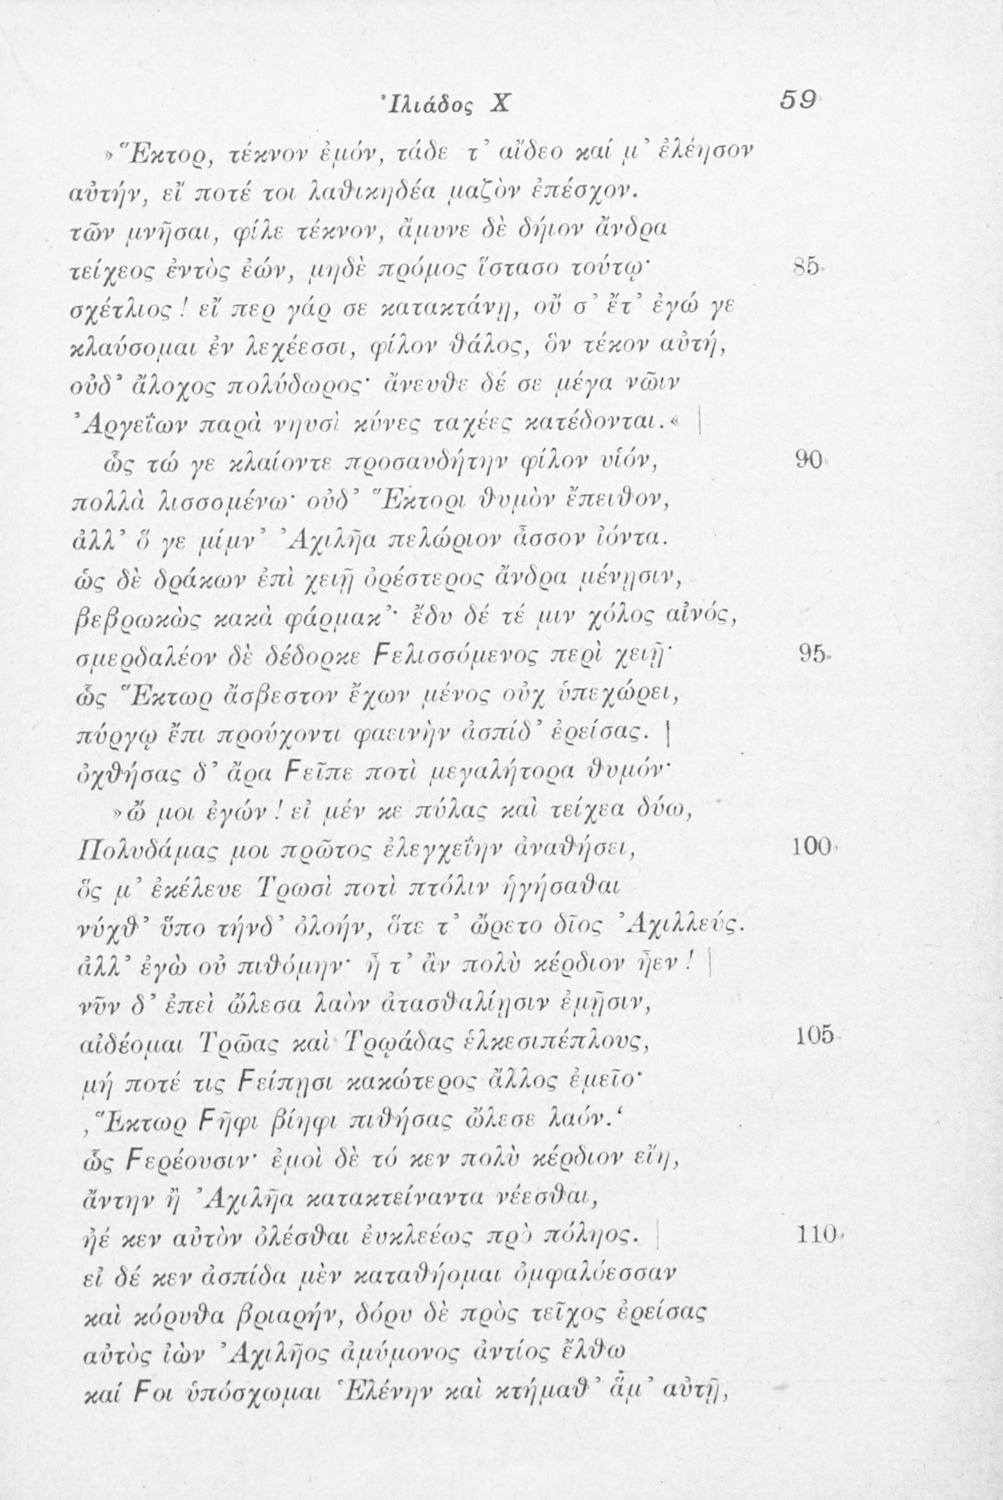 Ἰλιάδος Χ 59
»Ἕκτορ, τέκνον ἐμόν, τάδε τ' αἴδεο καί μ' ἐλέησον
αὐτήν, εἴ ποτέ τοι λαθικηδέα μαζὸν ἐπέσχον.
τῶν μνῆσαι, φίλε τέκνον, ἄμυνε δὲ δήιον ἄνδρα
τείχεος ἐντὸς ἐών, μηδὲ πρόμος ἵστασο τούτῳ· 85
σχέτλιος! εἴ περ γάρ σε κατακτάνῃ, οὔ σ' ἔτ' ἐγώ γε
κλαύσομαι ἐν λεχέεσσι, φίλον θάλος, ὃν τέκον αὐτή,
οὐδ' ἄλοχος πολύδωρος· ἄνευθε δέ σε μέγα νῶιν
Ἀργεΐων παρὰ νηυσὶ κύνες ταχέες κατέδονται.« |
ὣς τώ γε κλαίοντε προσαυδήτην φίλον υἱόν, 90
πολλὰ λισσομένω· οὐδ' Ἕκτορι θυμὸν ἔπειθον,
ἀλλ' ὅ γε μίμν' Ἀχιλῆα πελώριον ἆσσον ἰόντα.
ὡς δὲ δράκων ἐπὶ χειῇ ὀρέστερος ἄνδρα μένησιν,
βεβρωκὼς κακὰ φάρμακ'· ἔδυ δέ τέ μιν χόλος αἰνός,
σμερδαλέον δὲ δέδορκε Ϝελισσόμενος περὶ χειῇ· 95
ὣς Ἕκτωρ ἄσβεστον ἔχων μένος οὐχ ὑπεχώρει,
πύργῳ ἔπι προύχοντι φαεινὴν ἀσπίδ' ἐρείσας. |
ὀχθήσας δ' ἄρα Ϝεῖπε ποτὶ μεγαλήτορα θυμόν·
»ὤ μοι ἐγών! εἰ μέν κε πύλας καὶ τείχεα δύω,
Πολυδάμας μοι πρῶτος ἐλεγχεΐην ἀναθήσει, 100
ὅς μ' ἐκέλευε Τρωσὶ ποτὶ πτόλιν ἡγήσαθαι
νύχθ' ὕπο τήνδ' ὀλοήν, ὅτε τ' ὤρετο δῖος Ἀχιλλεύς.
ἀλλ' ἐγὼ οὐ πιθόμην· ἦ τ' ἂν πολὺ κέρδιον ἦεν! |
νῦν δ' ἐπεὶ ὤλεσα λαὸν ἀτασθαλίῃσιν ἐμῇσιν,
αἰδέομαι Τρῶας καὶ Τρῳάδας ἑλκεσιπέπλους, 105
μή ποτέ τις Ϝείπῃσι κακώτερος ἄλλος ἐμεῖο·
‚Ἕκτωρ Ϝῆφι βίηφι πιθήσας ὤλεσε λαόν.‘
ὣς Ϝερέουσιν· ἐμοὶ δὲ τό κεν πολὺ κέρδιον εἴη,
ἄντην ἢ Ἀχιλῆα κατακτείναντα νέεσθαι,
ἠέ κεν αὐτὸν ὀλέσθαι ἐυκλεέως πρὸ πόληος. | 110
εἰ δέ κεν ἀσπίδα μὲν καταθήομαι ὀμφαλόεσσαν
καὶ κόρυθα βριαρήν, δόρυ δὲ πρὸς τεῖχος ἐρείσας
αὐτὸς ἰὼν Ἀχιλῆος ἀμύμονος ἀντίος ἔλθω
καί Ϝοι ὑπόσχωμαι Ἑλένην καὶ κτήμαθ' ἅμ' αὐτῇ,